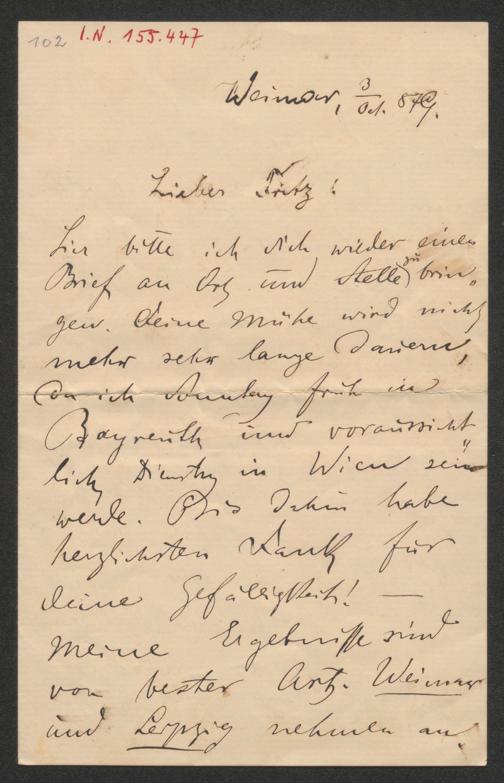 102 I.N. 155.447
Weimar, 3/Oct. 879.
Lieber Fritz!
Hier bitte ich dich wieder einen
Brief an Ort und Stelle zu brin„
gen. Deine Mühe wird nicht
mehr sehr lange dauern,
da ich Sonntag früh in
Bayreuth und voraussicht
lich Dienstag in Wien sein
werde. Bis dahin habe
herzlichsten Dank für
deine Gefälligkeit! —
Meine Ergebnisse sind
von bester Art. Weimar
und Leipzig nehmen an.